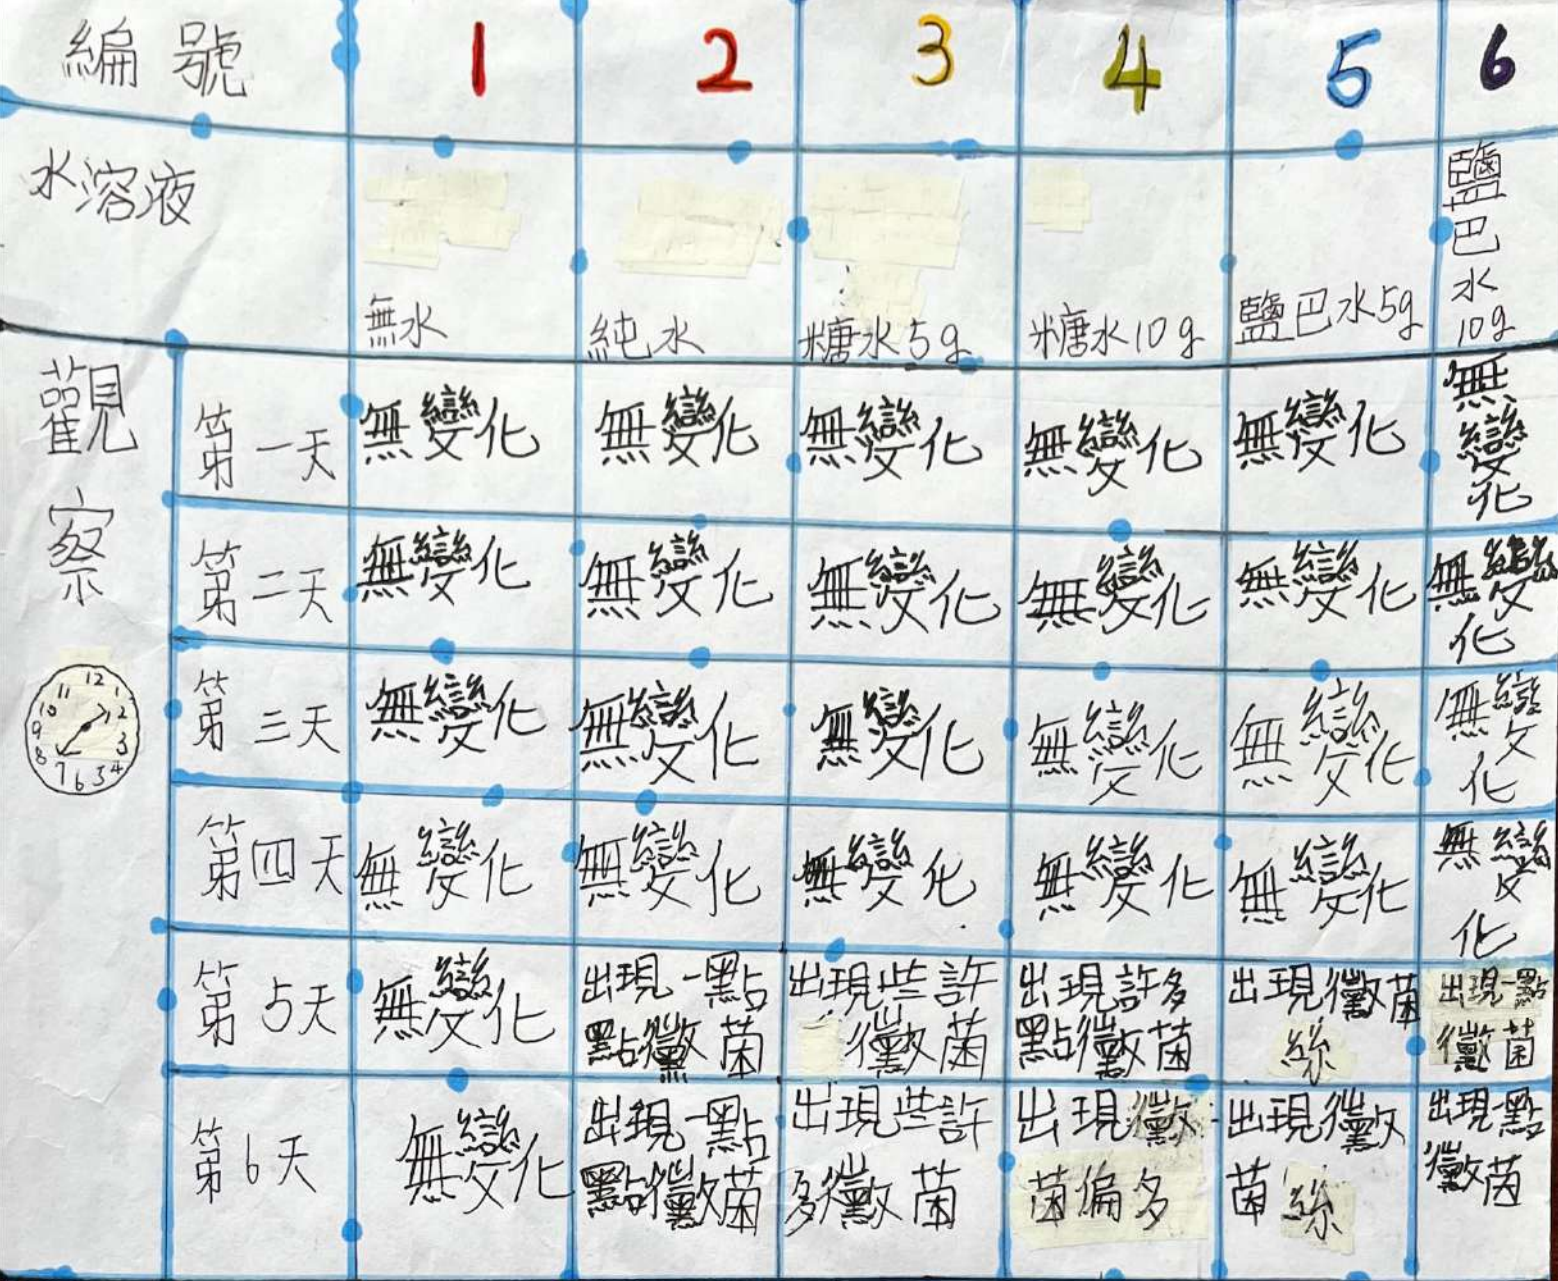 編號 1 2 3 4 5 6
水溶液 無水 純水 糖水5g 糖水10g 鹽巴水5g 鹽巴水10g
觀察
第一天 無變化 無變化 無變化 無變化 無變化 無變化
第二天 無變化 無變化 無變化 無變化 無變化 無變化
第三天 無變化 無變化 無變化 無變化 無變化 無變化
12 1 2 3 4 5 6 7 8 9 10 11
第四天 無變化 無變化 無變化 無變化 無變化 無變化
第5天 無變化 出現一點點黴菌 出現些許黴菌 出現許多點黴菌 出現黴菌絲 出現一點黴菌
第6天 無變化 出現一點點黴菌 出現些許多黴菌 出現黴菌偏多 出現黴菌絲 出現一點黴菌